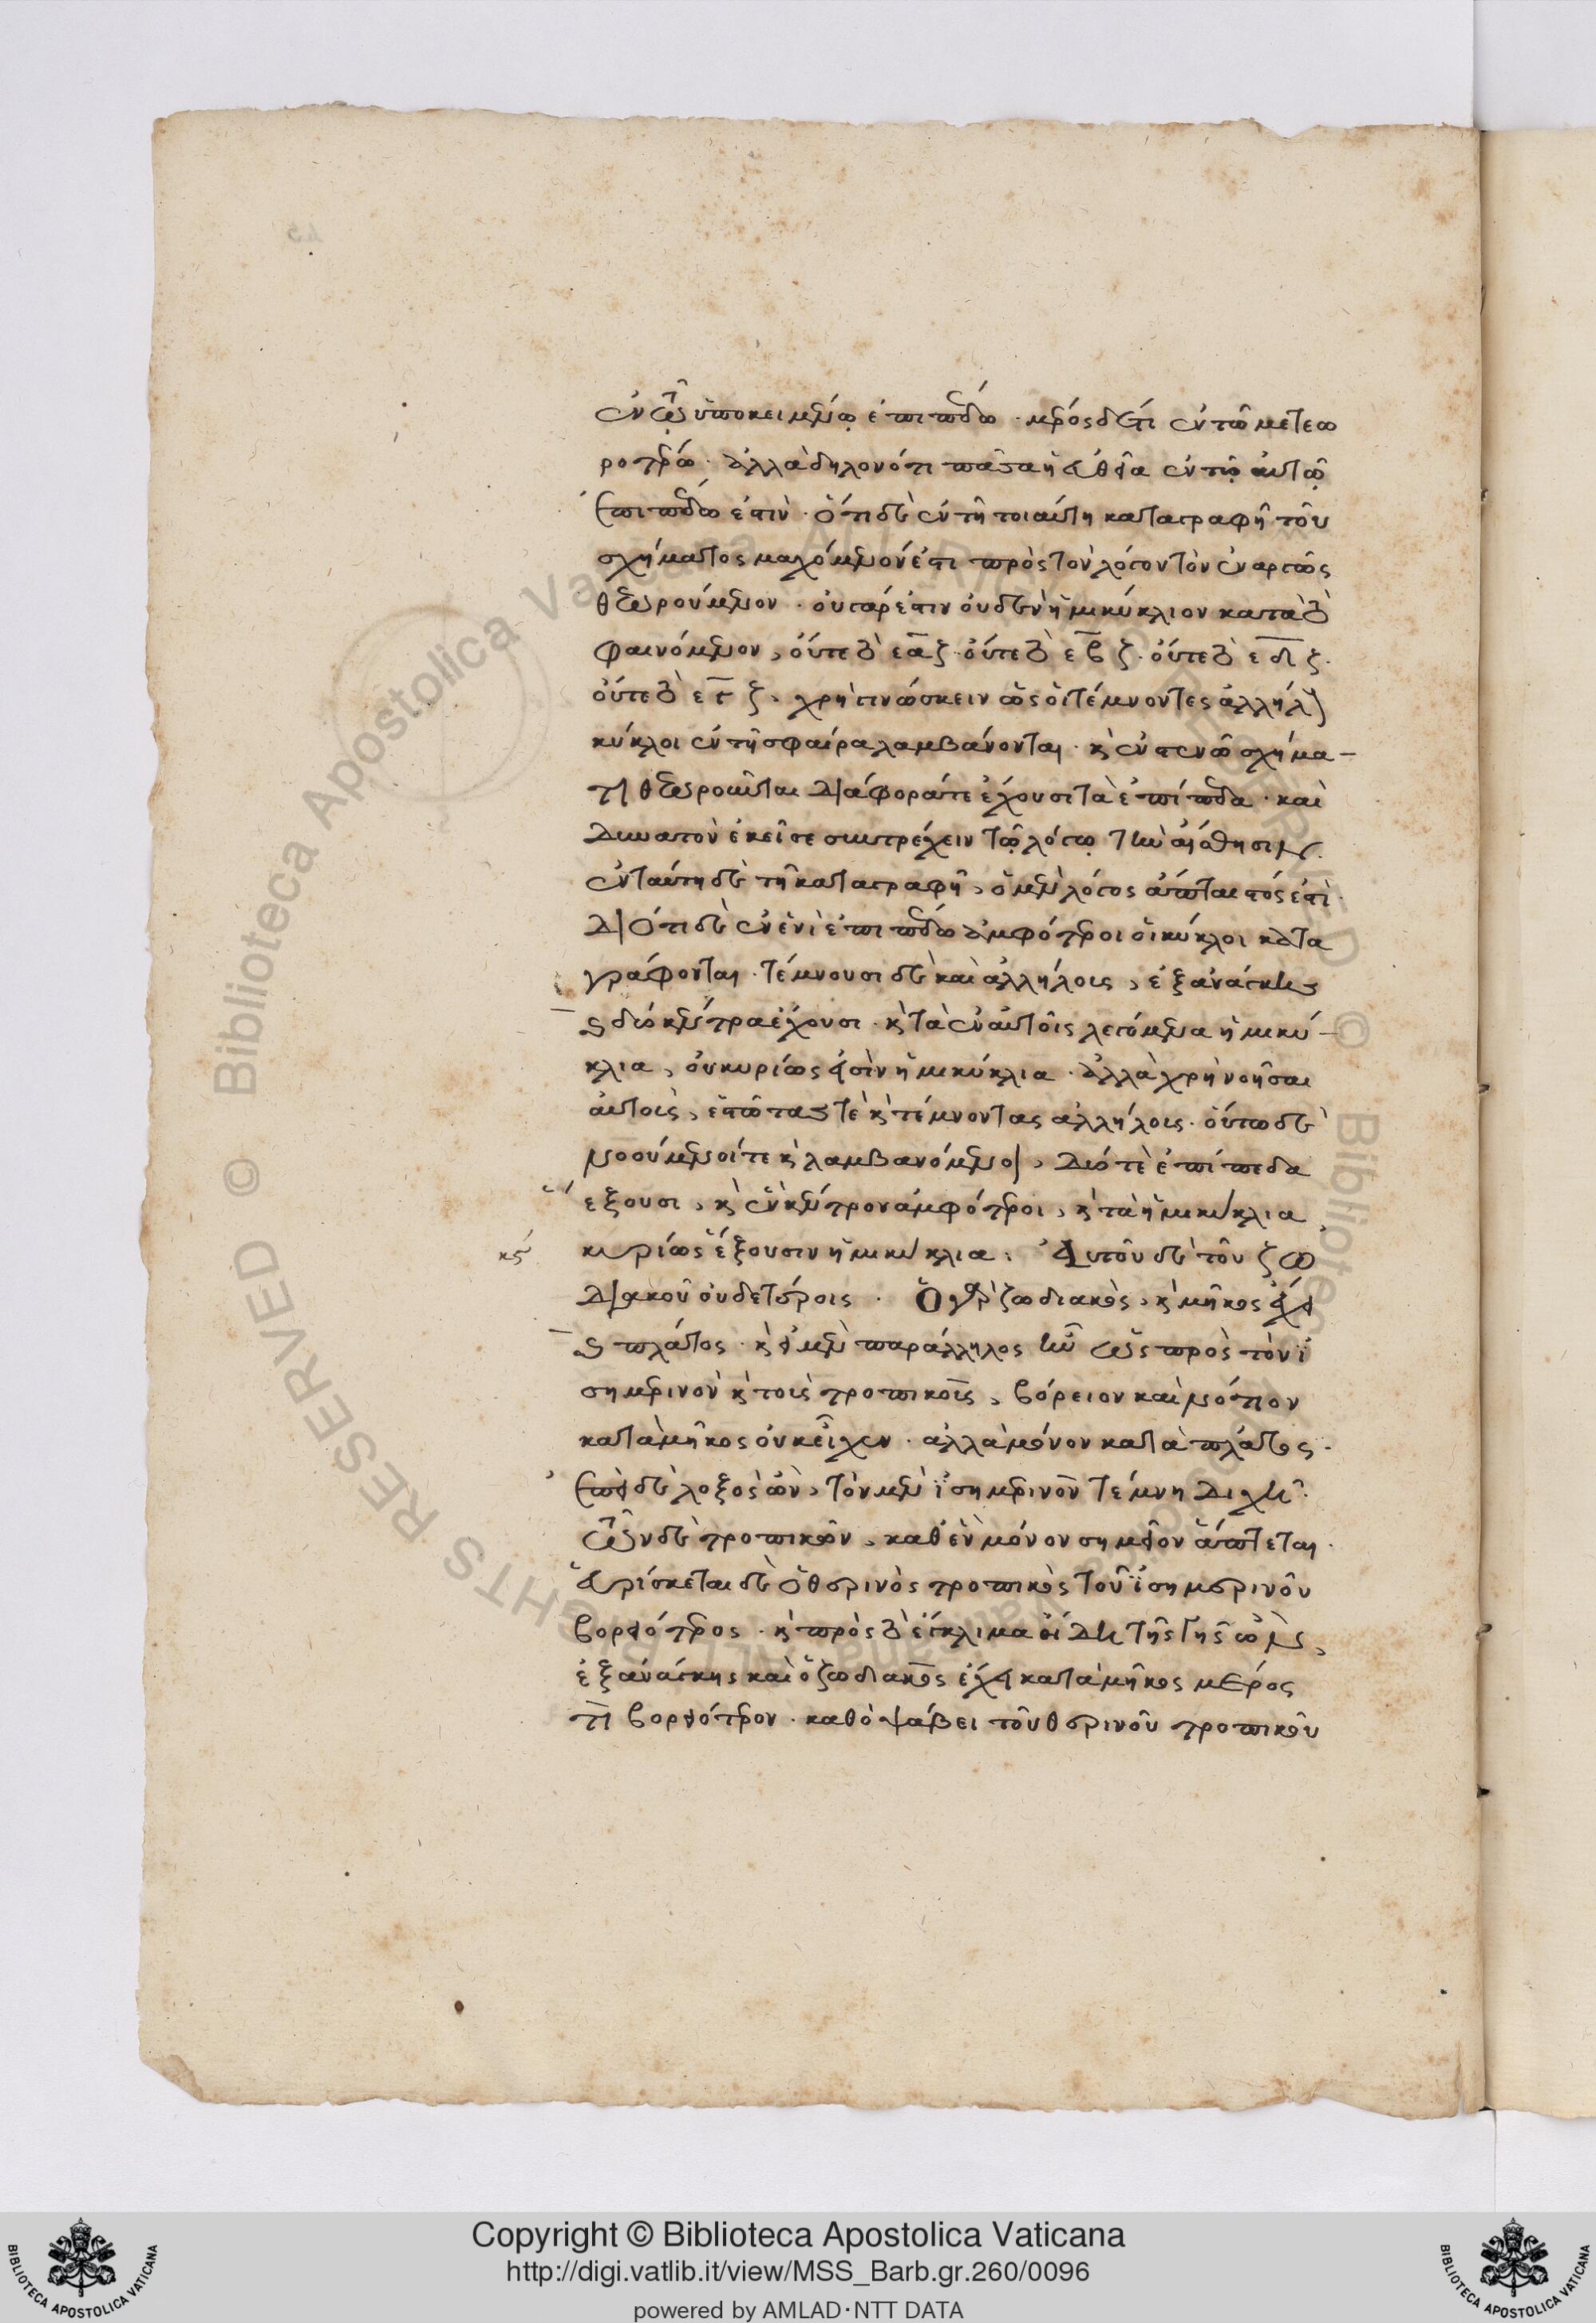 ἐν τῶ ὑποκειμένῳ ἐπιπέδω· μέρος δέ τι ἐν τῶ μετεω
ροτέρω· ἀλλὰ δηλονότι πᾶσα ἡ εὐθεῖα ἐν τῷ αὐτῷ
ἐπιπέδω ἐστὶν· ὅτι δὲ ἐν τῆ τοιαύτη καταγραφῆ τοῦ
σχήματος μαχόμενόν ἐστι πρὸς τὸν λόγον τὸν ἐναργῶς
θεωρούμενον· οὐ γάρ ἐστιν οὐδὲν ἡμικύκλιον κατὰ τὸ
φαινόμενον, οὔτε τὸ εαζ· οὔτε τὸ εβζ· οὔτε τὸ εδζ·
οὔτε τὸ εγζ, χρὴ γινώσκειν ὡς οἱ τέμνοντες ἀλλήλους
κύκλοι ἐν τῆ σφαίρα λαμβάνονται· καὶ ἐν στενῶ σχήμα-
τι θεωροῦνται διάφορά τε ἔχουσι τὰ ἐπίπεδα· καὶ
δυνατὸν ἐκεῖσε συντρέχειν τῷ λόγῳ τὴν αἴσθησιν·
ἐν ταύτη δὲ τῆ καταγραφῆ, ὁ μὲν λόγος ἄπταιστός ἐστι·
διότι δὲ ἐν ἑνὶ ἐπιπέδω ἀμφότεροι οἱ κύκλοι κατα
γράφονται· τέμνουσι δὲ καὶ ἀλλήλους, ἐξ ἀνάγκης
οὐ δύο κέντρα ἔχουσι· καὶ τὰ ἐν αὐτοῖς λεγόμενα ἡμικύ-
κλια, οὐ κυρίως εἰσὶν ἡμικύκλια· ἀλλὰ χρὴ νοῆσαι
αὐτοὺς, ἑστῶτας τὲ καὶ τέμνοντας ἀλλήλους· οὕτω δὲ
νοούμενοί τε καὶ λαμβανόμενοι, δύο τὲ ἐπίπεδα
ἕξουσι, καὶ ἓν κέντρον ἀμφότεροι, καὶ τὰ ἡμικύκλια
κυρίως ἕξουσιν ἡμικύκλια: Αὐτοῦ δὲ τοῦ ζω
κϛ
διακοῦ οὐδετέροις· Ὁ γὰρ ζωδιακὸς, καὶ μῆκος ἔχει
καὶ πλάτος· καὶ εἰ μὲν παράλληλος ἦν ὡς πρὸς τὸν ἰ
σημερινὸν καὶ τοὺς τροπικοὺς, βόρειον καὶ νότιον
κατὰ μῆκος οὐκ εἶχεν· ἀλλὰ μόνον κατὰ πλάτος·
ἐπεὶ δὲ λοξὸς ὢν, τὸν μὲν ἰσημερινὸν τέμνη διχῆ·
τῶν δὲ τροπικῶν, καθ ἓν μόνον σημεῖον ἅπτεται·
εὑρίσκεται δὲ ὁ θερινὸς τροπικὸς τοῦ ἰσημερινοῦ
βορειότερος· καὶ πρὸς τὸ ἔγκλιμα
ἐξ ἀνάγκης καὶ ὁ ζωδιακὸς ἔχει κατὰ μῆκος μέρος
τι βορειότερον· καθὸ ψαύει τοῦ θερινοῦ τροπικοῦ
Copyright © Biblioteca Apostolica Vaticana
http://digi.vatlib.it/view/MSS_Barb.gr.260/0096
powered by AMLAD·NTT DATA